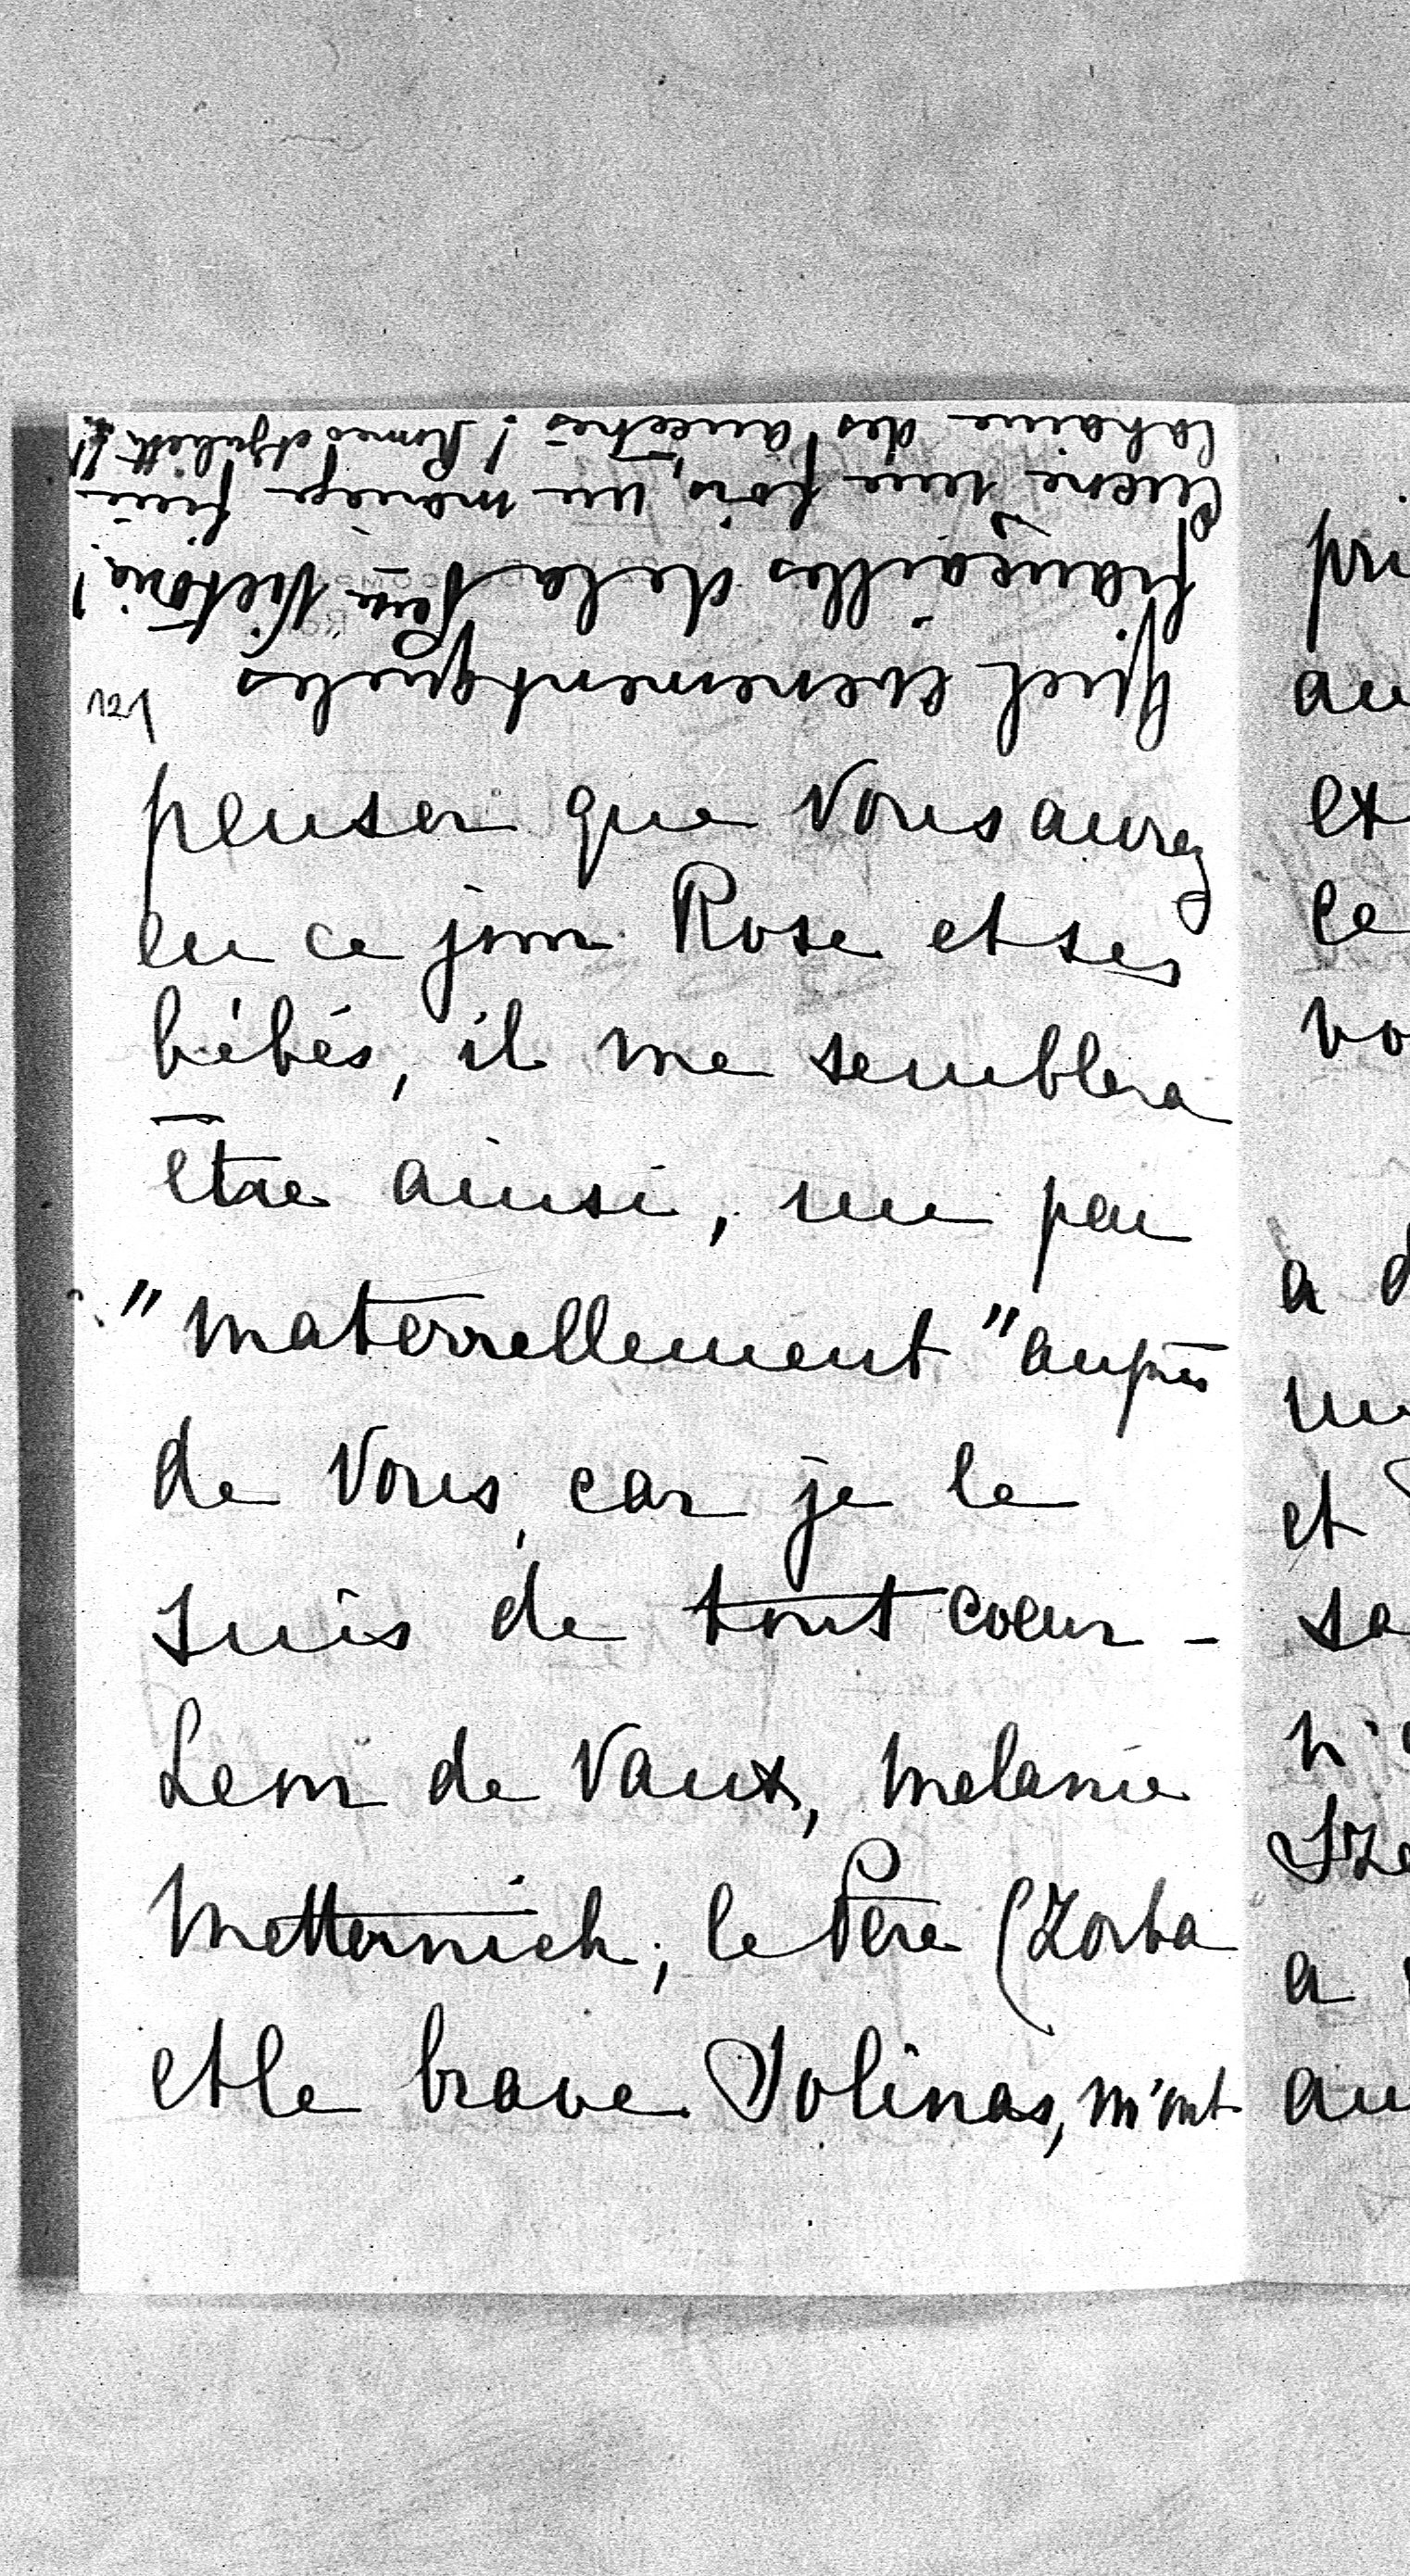 Quel evenement que les
fiançailles de la Psse Victoria!
Encore une fois, un mariage finie
la haine des ancetres! Romeo et Juliette!!
121
penser que Vous aurez
eu ce jour Rose et ses
bébés, il me semblera
être ainsi, un peu
"maternellement" auprès
de Vous, car je le
suis de tout coeur -
Leon de Vaux, Melanie
Metternich, le Père (Zorba
et le brave Solinas, m'ont
pri
au
ce
vo
a d
et
sa
n'
a
au